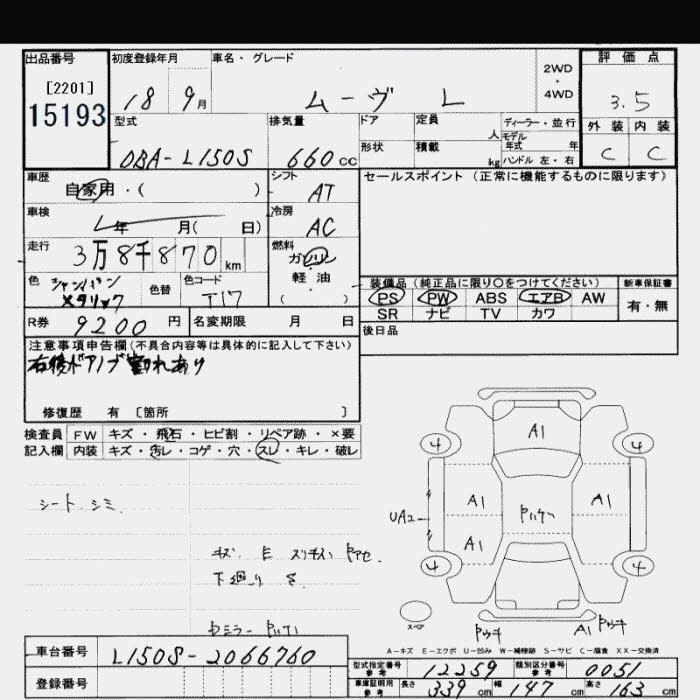 出品番号 初度登録年月 車名・グレード 2WD・4WD 評価点
[2201]
15193 18 9月 ムーヴ L 3.5
型式 排気量 ドア 定員 人 ディーラー・並行 外装 内装
モデル年式 年
DBA-L150S 660cc 形状 積載 kg ハンドル 左・右 C C
車歴 自家用・( ) シフト AT セールスポイント (正常に機能するものに限ります)
車検 年 月( 日) 冷房 AC
走行 3万8千870km 燃料 ガソリン
軽・油
( )
色 シャンパン 色替 色コード
メタリック T17
装備品(純正品に限り○をつけてください) 新車保証書
PS PW ABS エアB AW 有・無
SR ナビ TV カワ
R券 9200円 名変期限 月 日 後日品
注意事項申告欄(不具合内容等は具体的に記入して下さい)
右後ドアノブ割れあり
修復歴 有 [箇所 ]
検査員 FW キズ・飛石・ヒビ割・リペア跡・×要
記入欄 内装 キズ・汚レ・コゲ・穴・スレ・キレ・破レ
A1
4 4
シート シミ
A1 A1
UA2
A1
4 4
下廻り
スペア
A1
A-キズ E-エクボ U-凹み W-補修跡 S-サビ C-腐食 XX-交換済
車台番号 L150S-2066760
型式指定番号 参考 12259 類別区分番号 参考 0051
登録番号
車庫証明用 参考 長さ 339cm 幅 147cm 高さ 163cm